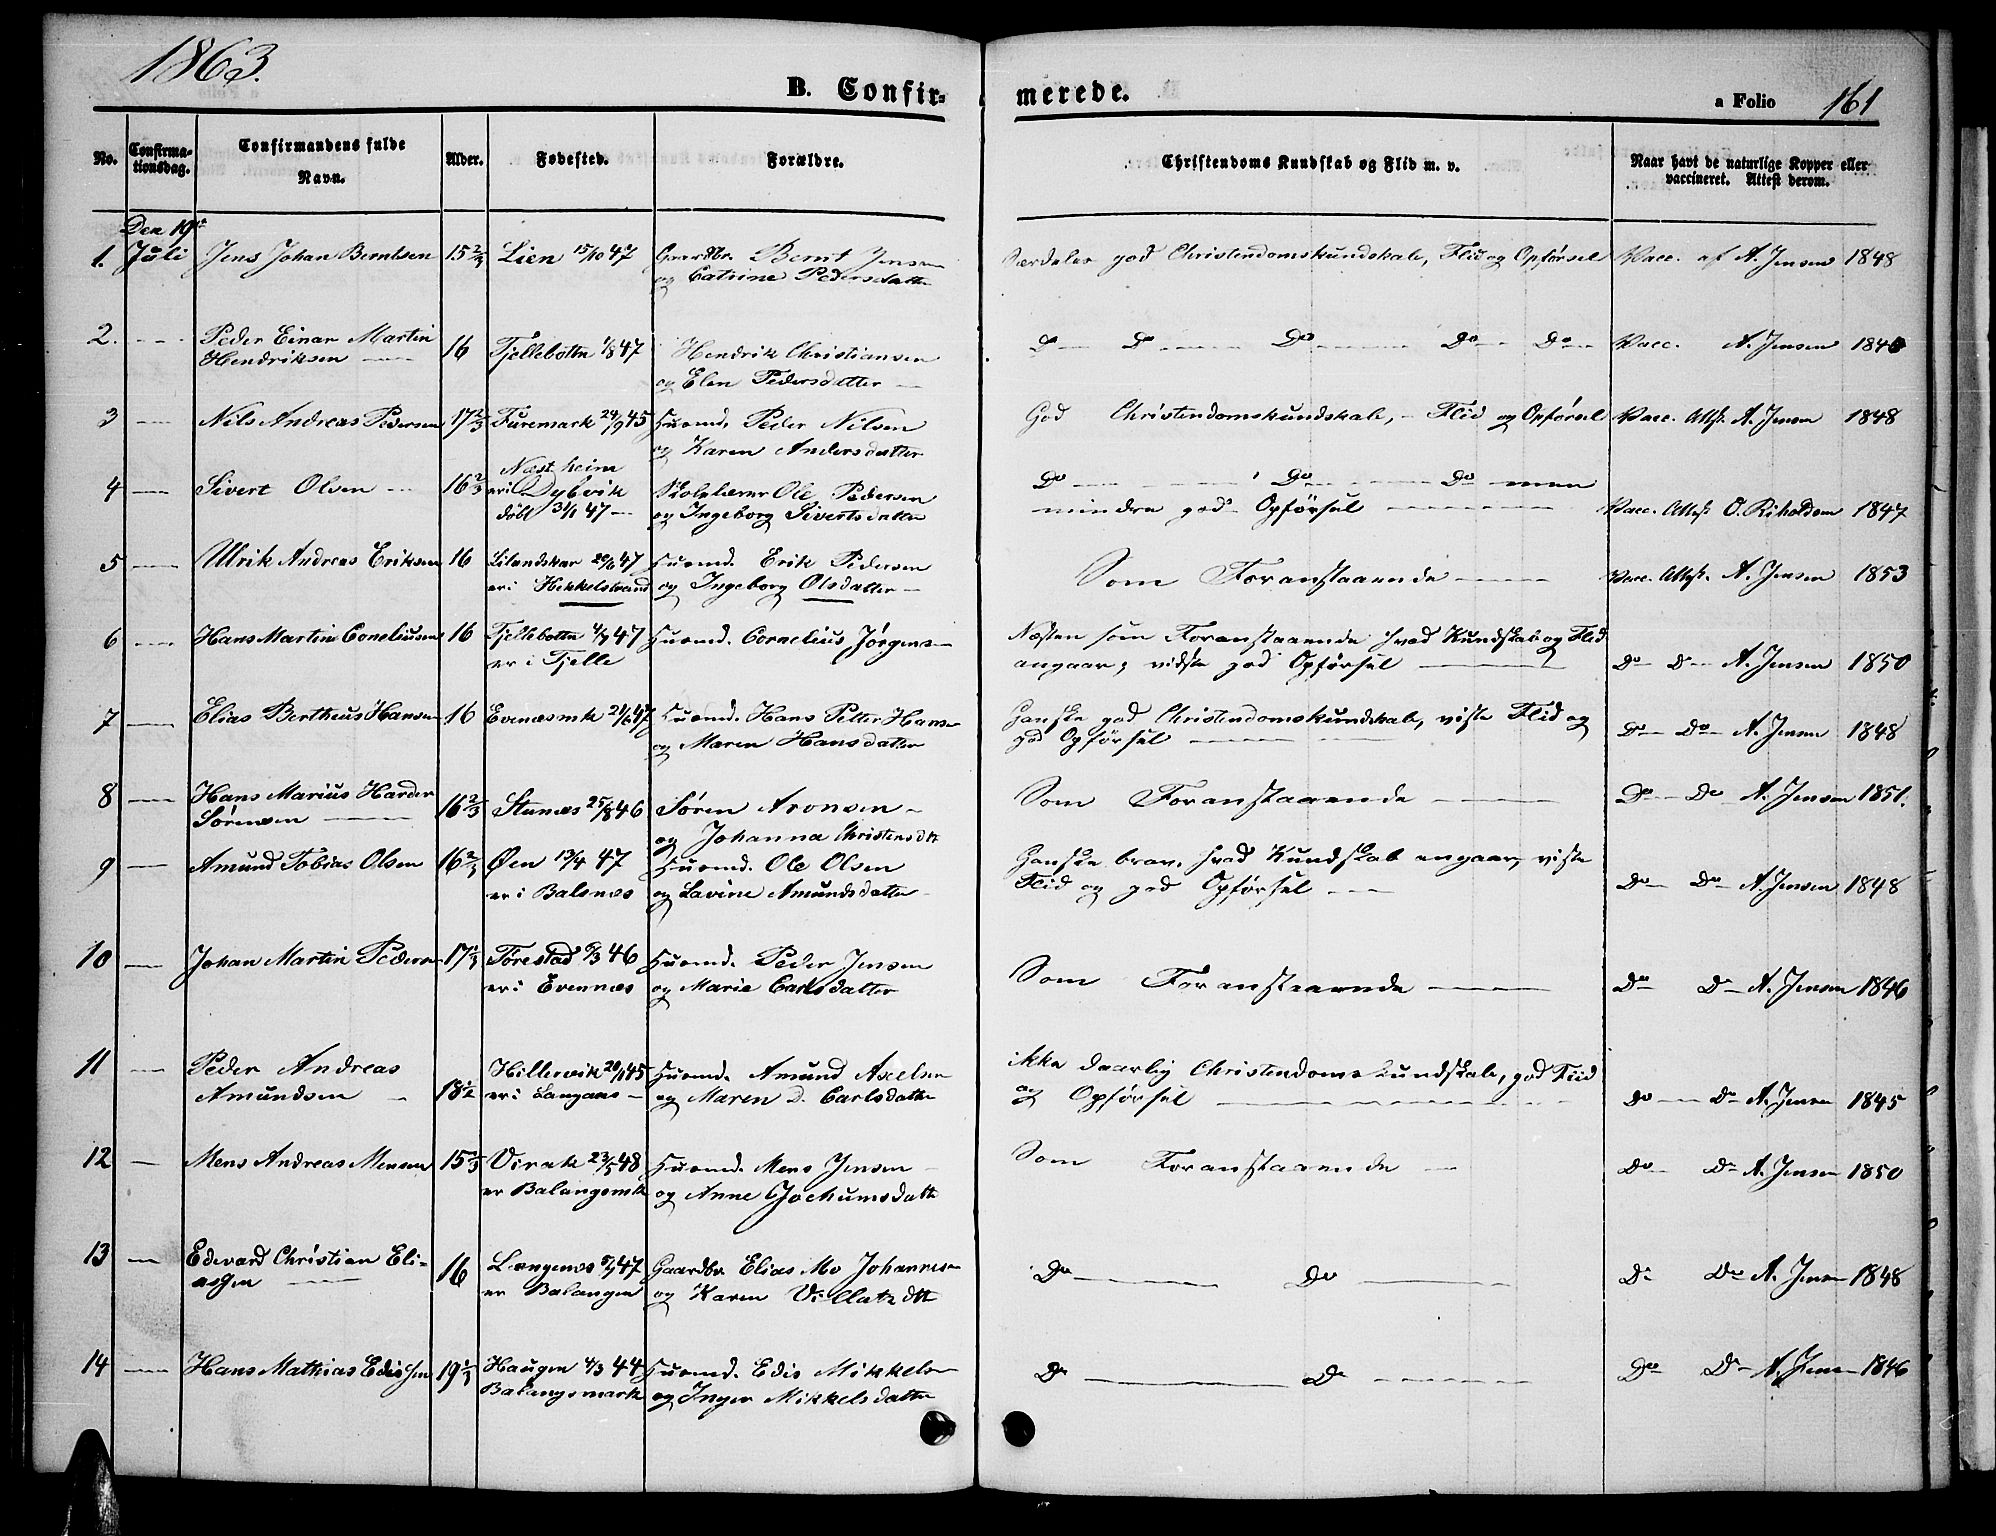 1863.
B. Confir-
merede.
a Folio 161
No.
Confirma-
tionsdag.
Confirmandens fulde
Navn.
Alder.
Fødested.
Forældre.
Christendoms Kundskab og Flid m. v.
Naar havt de naturlige Kopper eller
vaccineret. Attest derom.
Den 19de
1. Juli Jens Johan Berntsen 15 2/3 Lien 15/10 47 Gaardbr. Bernt Jensen
og Catrine Pedersdatter
Særdeles god Christendomskundskab, Flid og Opførsel Vacc. af A. Jensen 1848
2. Peder Einar Martin
Hendriksen 16 Tjellebotn 1/8 47 Hendrik Christiansen
og Elen Pedersdatter
Do Do Do Do Do Vacc. A. Jensen
3 Nils Andreas Pedersen 17 2/3 Furemark 24/9 45 Huusmd. Peder Nilsen
og Karen Andersdatter
God Christendomskundskab, Flid og Opførsel Vacc. Attest. A. Jensen 1848
4 Sivert Olsen 16 2/3 Næstheim
er i Dybvik
døbt 3/1 47 Skolelærer Ole Pedersen
og Ingeborg Sivertsdatter
Do Do Do men
mindre god Opførsel Vacc. Attest O. 1847
5 Ulrik Andreas Eriksen 16 Lilandskar 47
er i Hekkelstrand Huusmd. Erik Pedersen
og Ingeborg Olsdatter
Som Foranstaaende Vacc. Attest. A. Jensen 1853
6 Hans Martin Coneliusen 16 Tjellebotn 4/7 47
er i Tjelle Huusmd. Cornelius Jørgens
Næsten som Foranstaaende hvad Kundskab og Flid
angaar; vidste god Opførsel Do D A. Jensen 1850
7 Elias Bertheus Hansen 16 Evenæsmk 21/6 47 Huusmd. Hans Petter Hans
og Maren Hansdatter
Ganske god Christendomskundskab, viste Flid og
god Opførsel Do Do A. Jensen 1848
8 Hans Marius Harder
Sørensen 16 2/3 Stunæs 25/8 46 Søren Aronsen
og Johanna Christensdtr
Som Foranstaaende Do Do A. Jensen 1851.
9 Amund Tobias Olsen 16 2/3 Øen 13/4 47
er i Balsnes Huusmd. Ole Olsen
og Lavine Amundsdatter
Ganske brav, hvad Kundskab angaar, viste
Flid og god Opførsel Do Do A. Jensen 1848
10 Johan Martin Peders 17 1/3 Forestad 46
er i Evennæs Huusmd. Peder Jensen
og Marie Carlsdatter
Som Foranstaaende Do D A. Jensen 1846
11 Peder Andreas
Amundsen 18 1/2 Hillervik 45
er i Langaas Huusmd. Amund Axelsen
og Maren D. Carlsdatter
ikke daarlig Christendomskundskab, god Flid
og Opførsel Do D A. Jensen 1845
12 Mens Andreas Mensen 15 Virak 23/5 48
er Balangsmk Huusmd. Mens Jensen
og Anne Jochumsdatter
Som Foranstaaende Do Do A. Jensen 1850
13 Edevard Christian Eli-
assen 16 Længenes 47
er Balangen Gaardbr. Elias Mo Johannes
og Karen dtr
Do Do Do Do A. Jensen 1848
14 Hans Mathias Edissen 19 1/3 Haugen 4/3 44
Balangsmark Huusmd. Edis Mikkels
og Inger Mikkelsdatter
Do Do Do D A. Jensen 1846